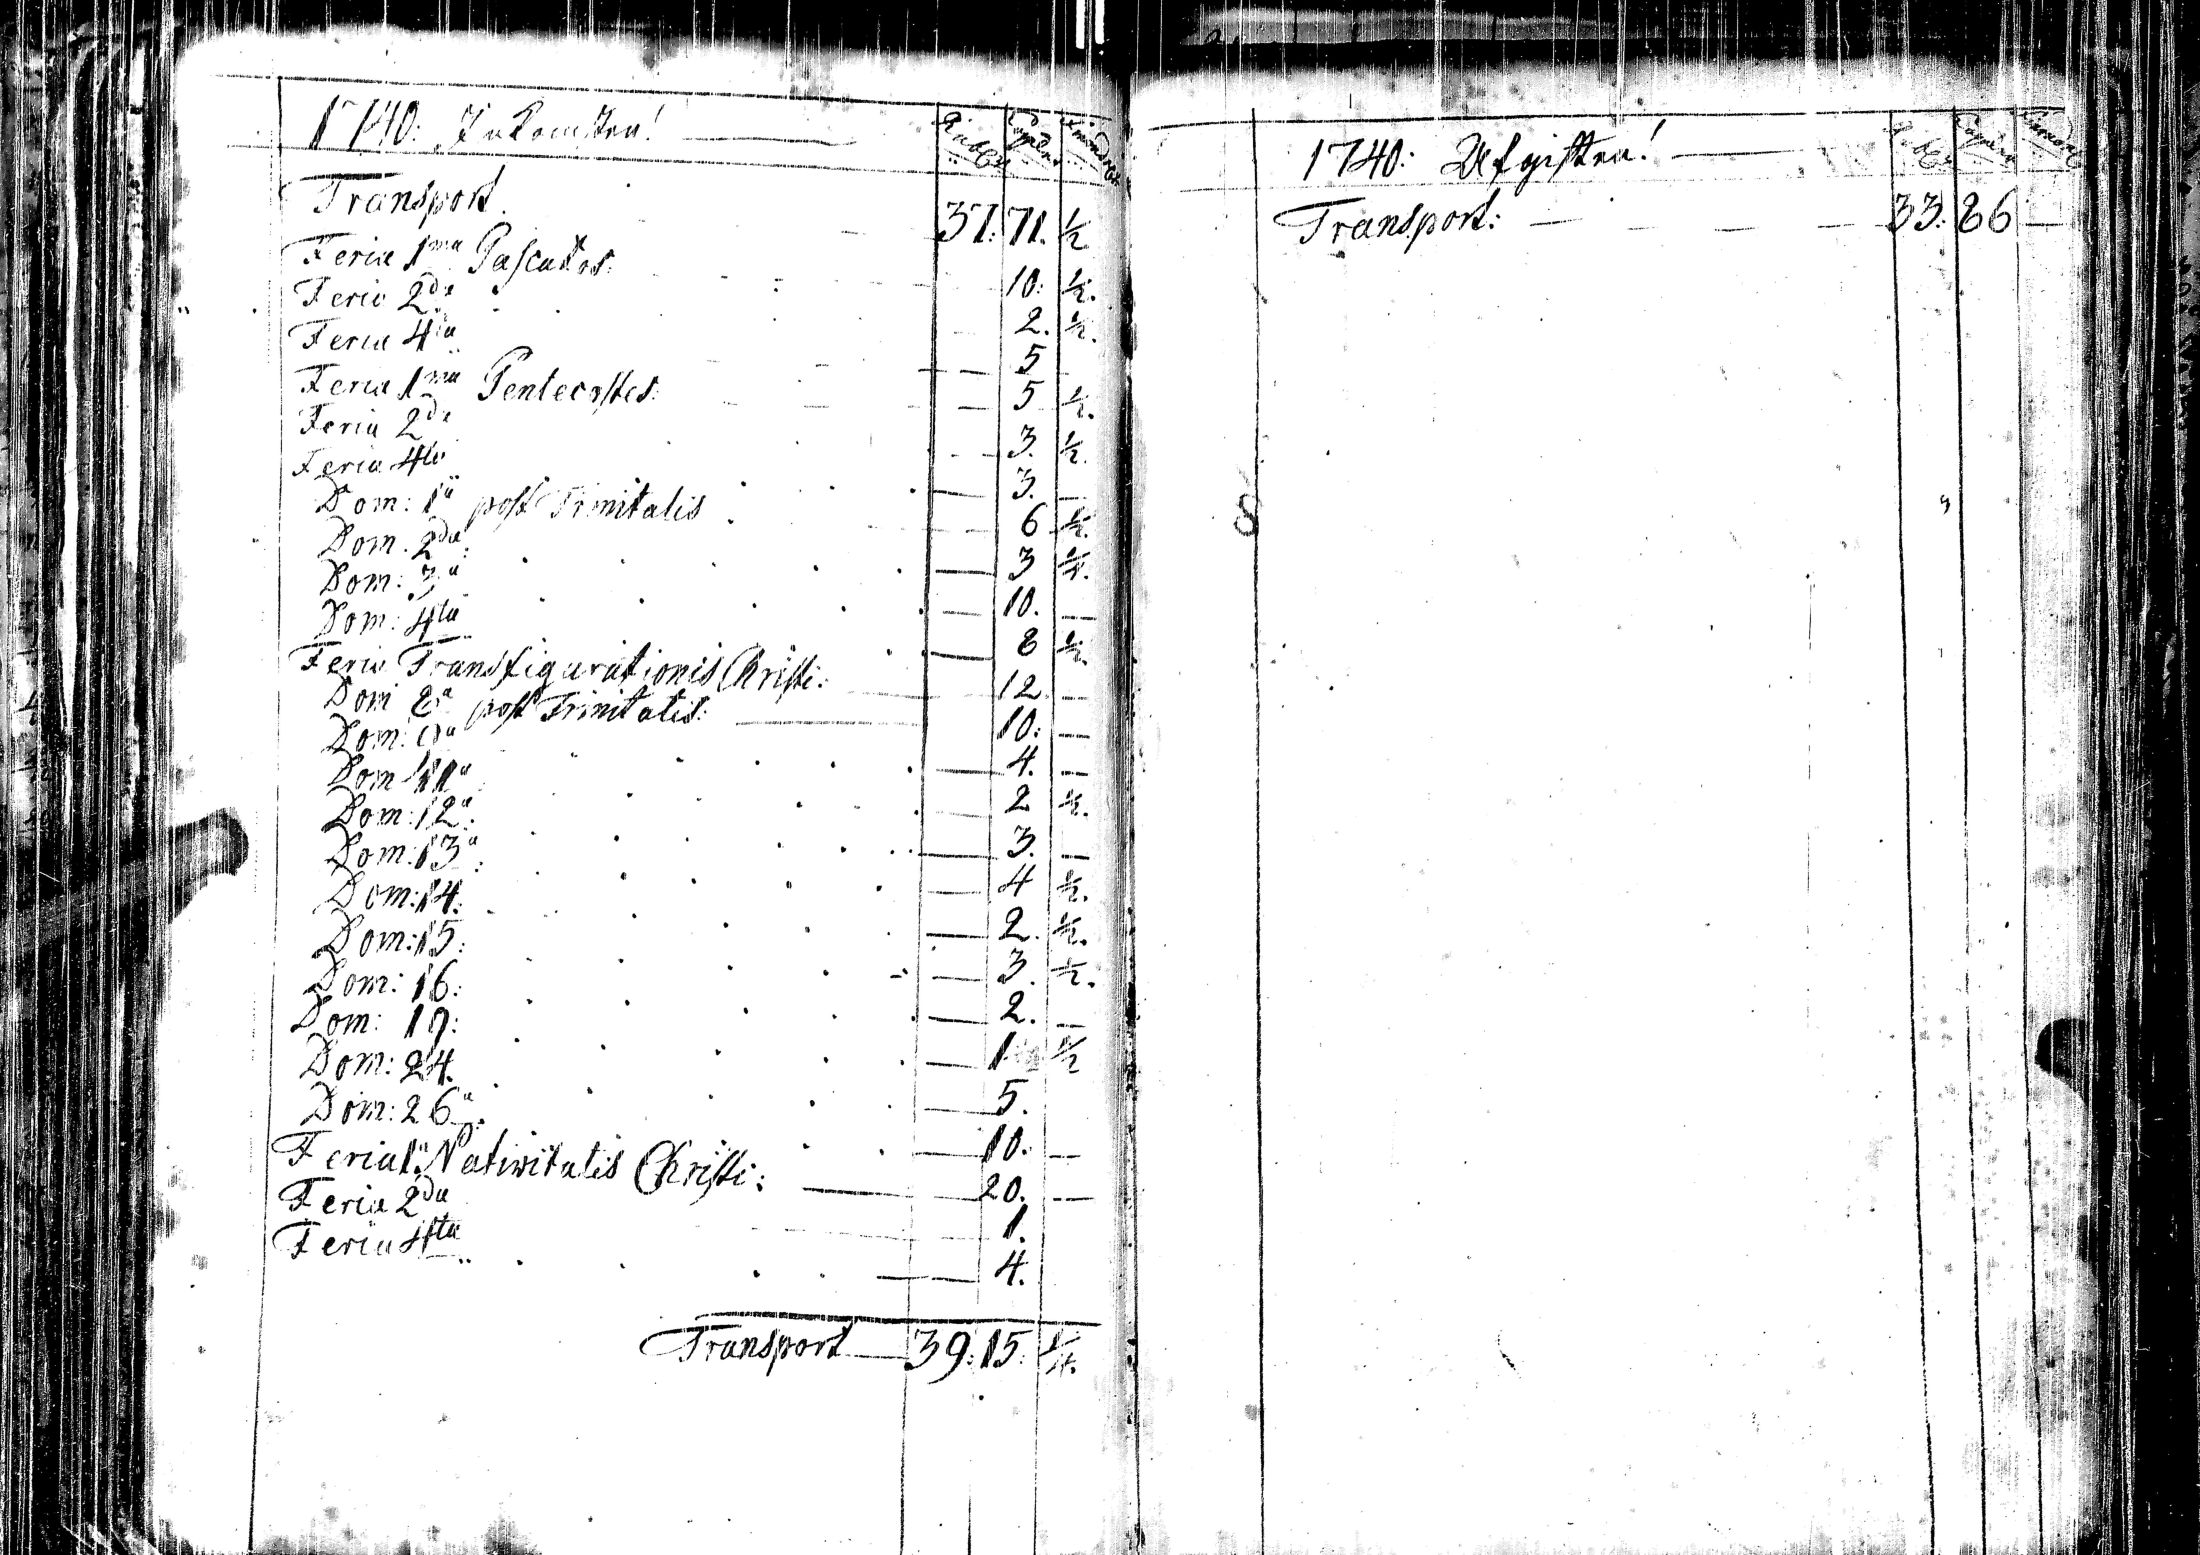 1740: Inkomsten! Rubler Copeker
Transport 37: 71. ½
Feria 1ma Pascatos: 10: ½.
Feria 2da 2. ½.
Feria 4ta 5
Feria 1ma Pentecostes: 5 ½.
Feria 2da 3. ½.
Feria 4ta 3. —
Dom: 1a post Trinitatis 6 ½.
Dom. 2da: 3 ¼.
Dom: 3a 10. —
Dom: 4ta 8 ½.
Feria Transfigurationis Christi: 12 —
Dom 8a post Trinitatis: 10: —
Dom: 9a 4. —
Dom 11a 2 ½.
Dom: 12a: 3. —
Dom: 13a: 4 ½.
Dom: 14: 2. ½.
Dom: 15: 3. ½.
Dom: 16: 2. —
Dom: 19: 1 ½
Dom: 24. 5.
Dom: 26a: 10. —
Feria 1a Nativitatis Christi: 20. —
Feria 2da 1.
Feria 4ta 4.
Transport — 39: 15: ¼.
1740: Utgiften! Rubler Copeker
Transport: — 33: 86 —